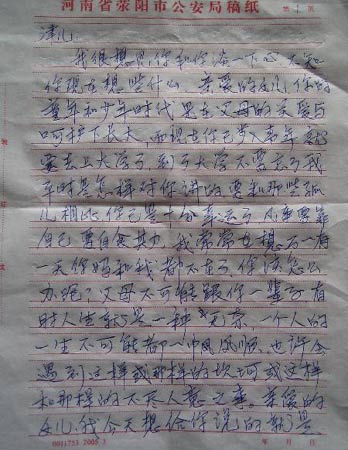 河南省荥阳市公安局稿纸
第 1 页
津儿:
我很想与你和你谈一下心,不知
你现在想些什么,亲爱的女儿,你的
童年和少年时代是在父母的关爱与
呵护下长大,而现在你已步入青年就
要去上大学了到了大学不要忘了我
平时是怎样对你讲的要和那些孤
儿相比你已是十分幸运了,凡事要靠
自己要自食其力。我常常也想万一有
一天你妈和我都不在了你该怎么
办呢?父母不可能跟你一辈子有
时人生就是一种无奈,一个人的
一生不可能都一帆风顺,也许会
遇到这样或那样的坎坷或这样
和那样的不尽人意之事。亲爱的
女儿,我今天想给你说的就是
0011753 2005.3
年 月 日